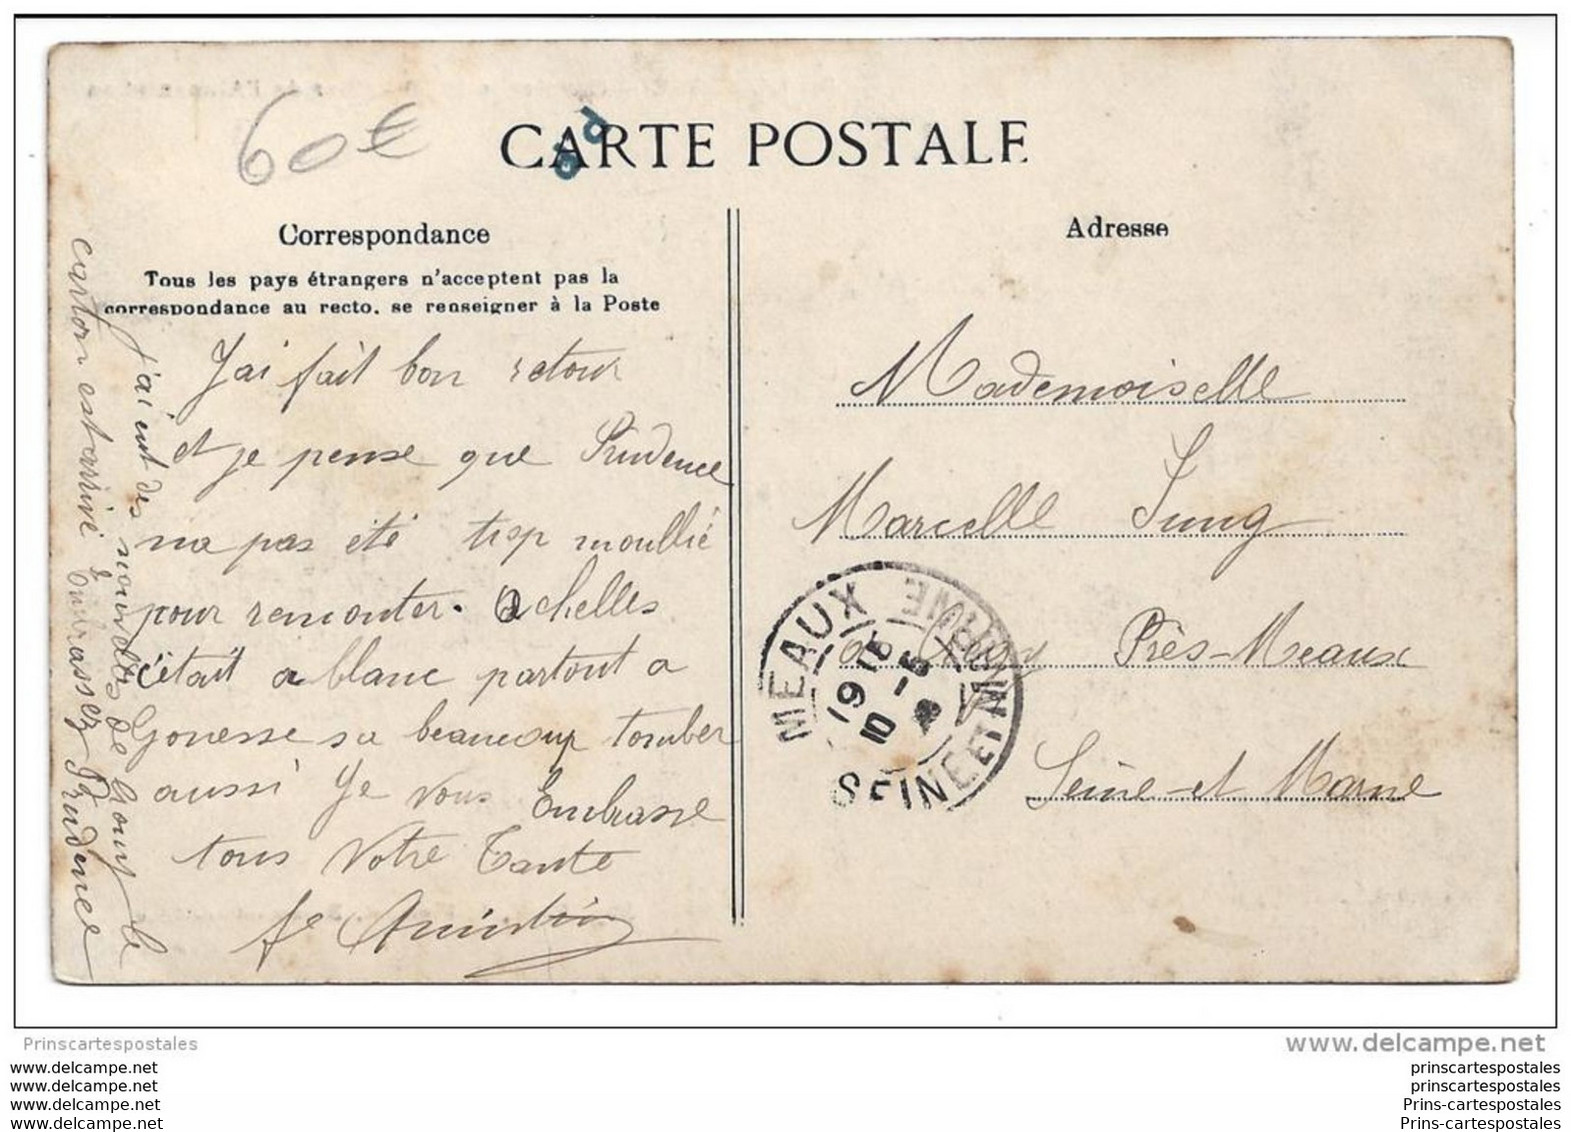 60€
CARTE POSTALE
Correspondance
Tous les pays étrangers n'acceptent pas la
correspondance au recto, se renseigner à la Poste
J'ai fait bon retour
et je pense que Prudence
na pas été trop moullié
pour remonter. a chelles
c'était a blanc partout a
Gonesse sa beaucoup tomber
aussi Je vous Embrasse
tous Votre Tante
j'ai eut des nouvelles de le
carton est arrivé & Embrassez Prudence
Adresse
Mademoiselle
Marcelle Jung
a Près-Meaux
Seine-et Marne
MEAUX
SEINE ET MARNE
Prinscartespostales
www.delcampe.net
www.delcampe.com
www.delcampe.com
www.delcampe.com
www.delcampe.com
prinscartespostales
prinscartespostales
Prins-cartespostales
Prins-cartespostales